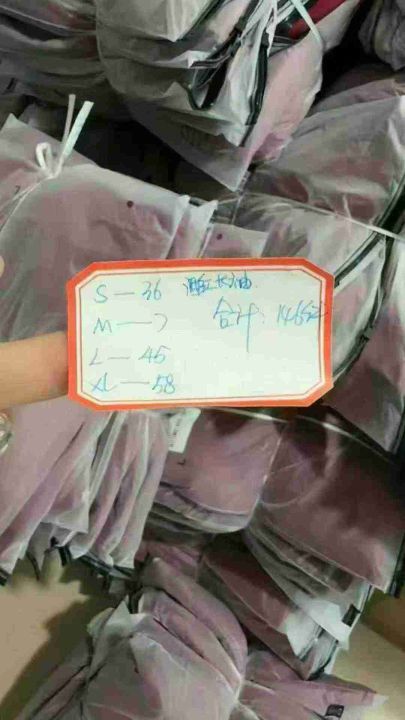 S — 36 酒红长油
M — 7 合计: 146件
L — 45
XL — 58